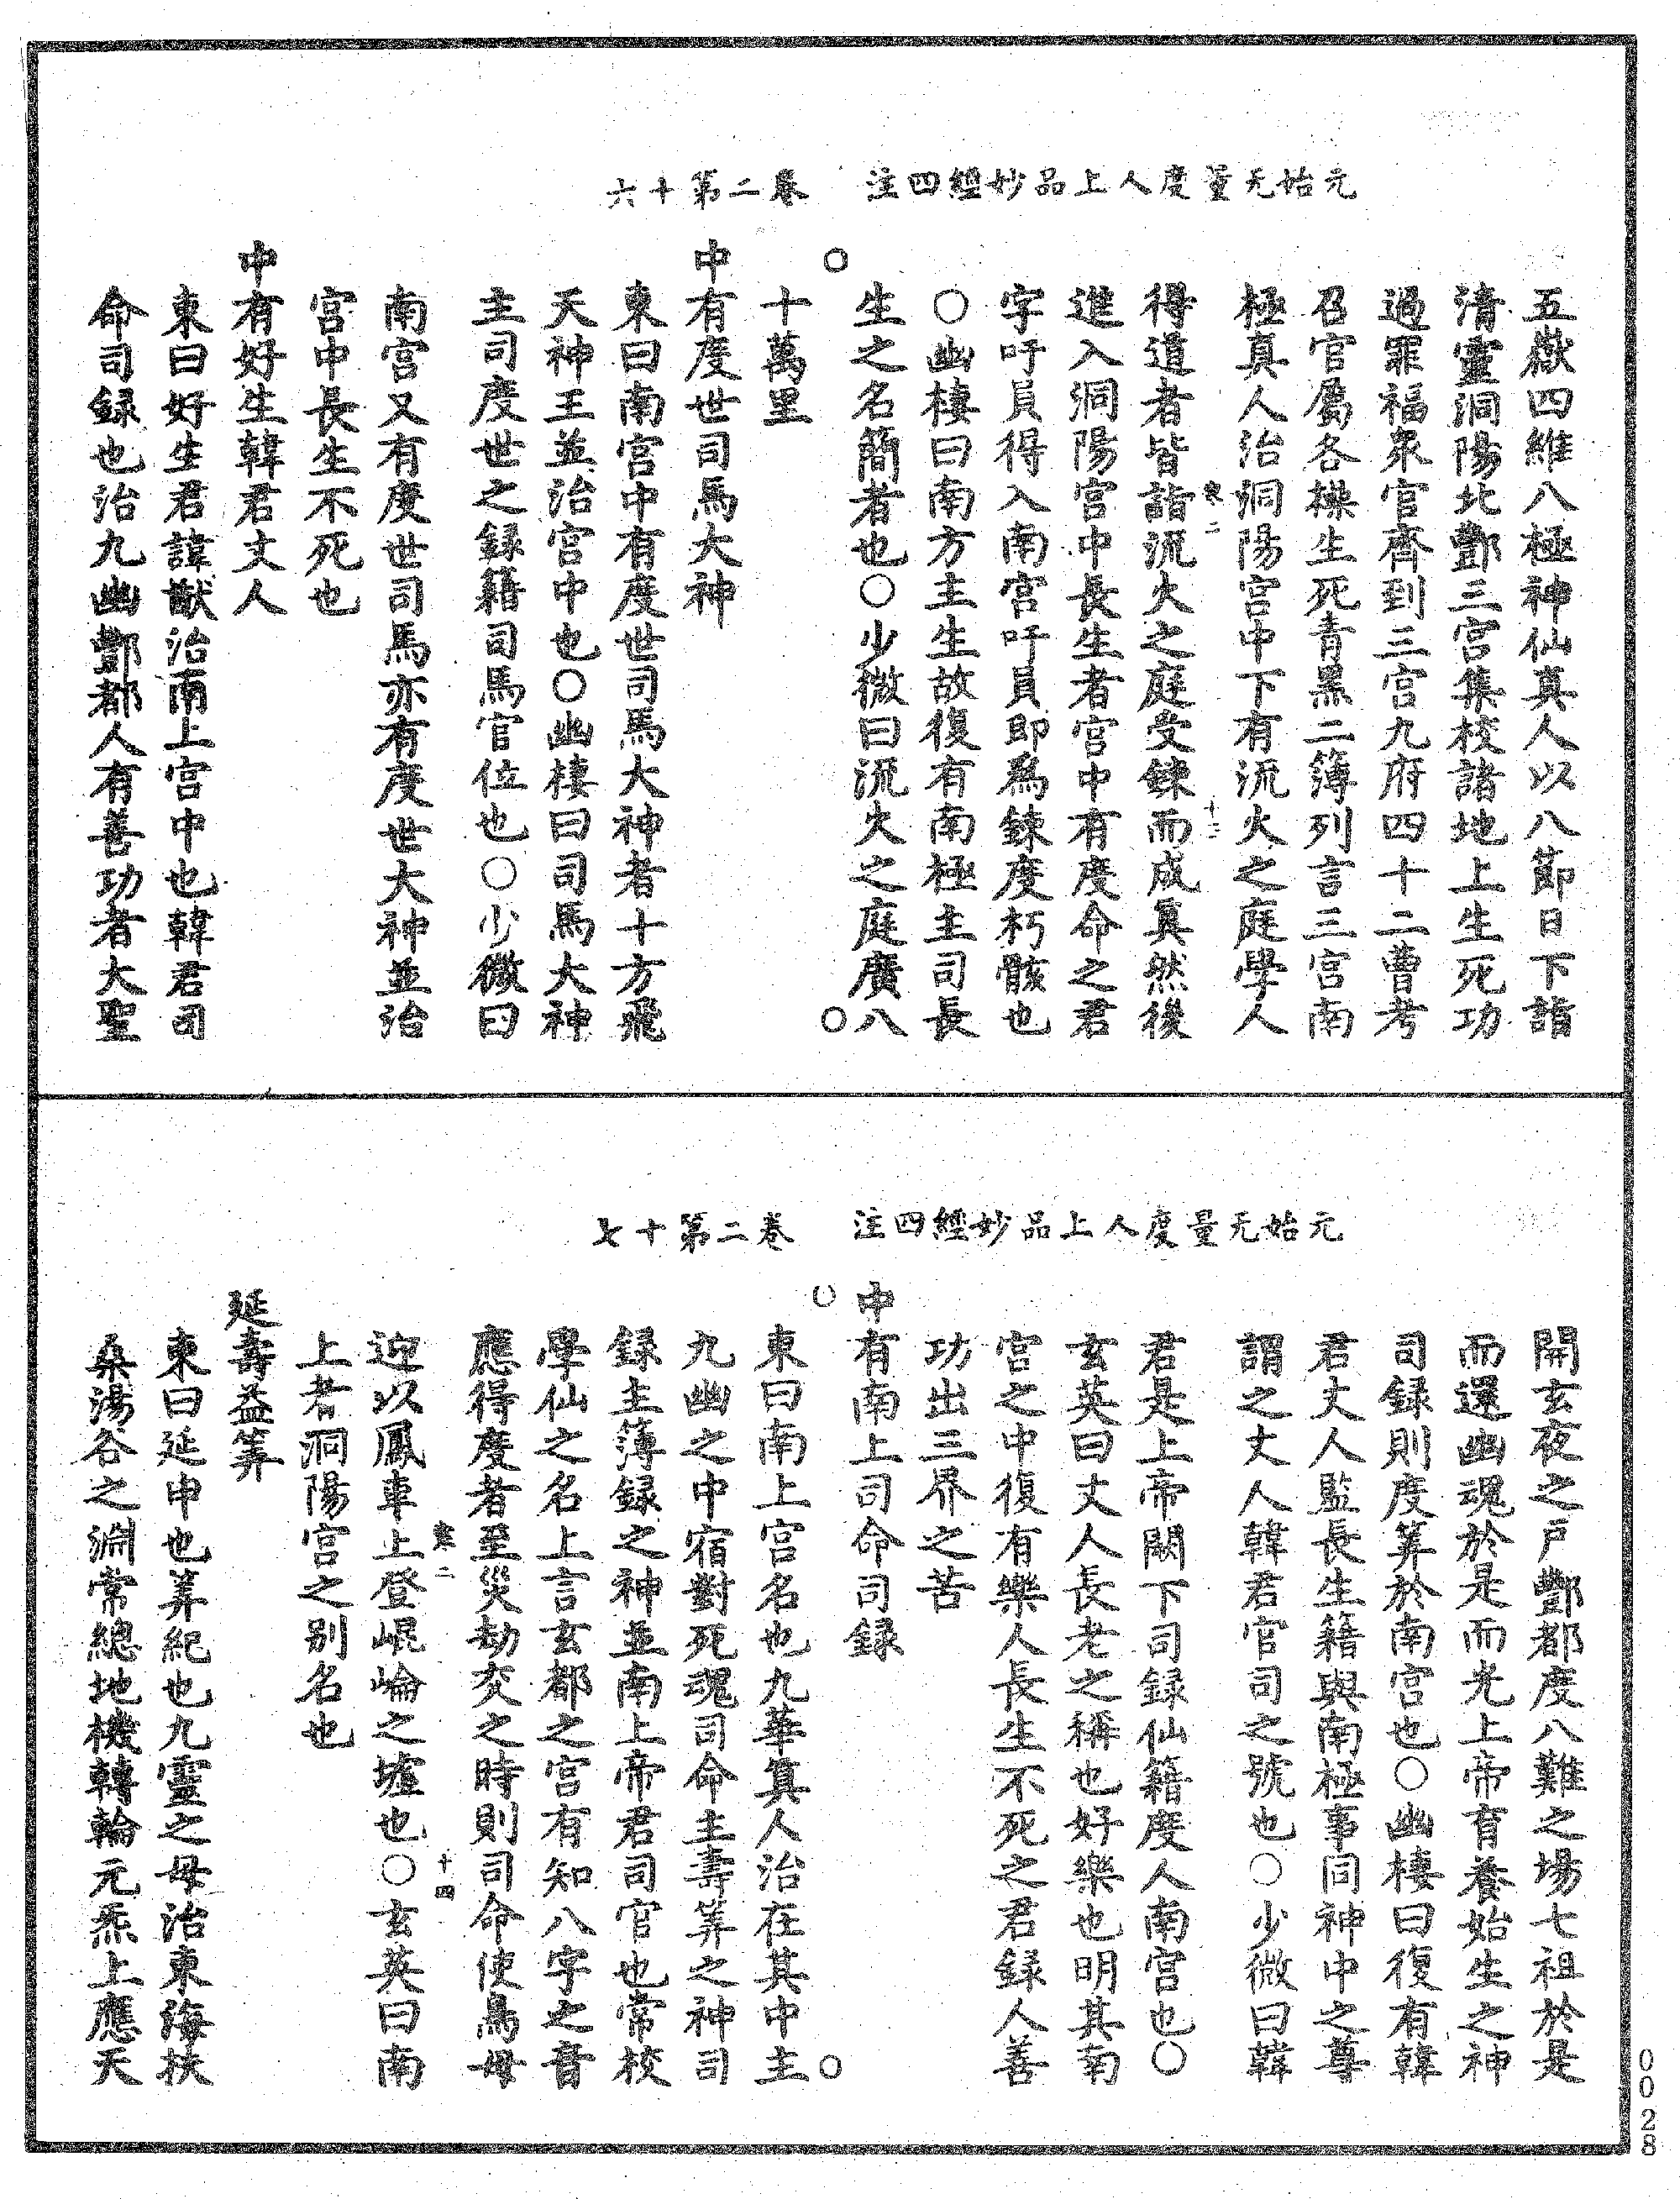 元始无量度人上品妙經四注　卷二第十六
五嶽四維八極神仙真人以八節日下詣
清靈洞陽北酆三宮集校諸地上生死功
過罪福衆官齊到三官九府四十二曹考
召官屬各操生死青黑二簿列言三宮南
極真人治洞陽宮中下有流火之庭學人
卷二　十三
得道者皆詣流火之庭受鍊而成真然後
進入洞陽宮中長生者宮中有度命之君
字吁員得入南宮吁員即爲鍊度朽骸也
○幽棲曰南方主生故復有南極主司長
生之名簡者也○少微曰流火之庭廣八
十萬里
中有度世司馬大神
東曰南宮中有度世司馬大神者十方飛
天神王並治宮中也○幽棲曰司馬大神
主司度世之録籍司馬官位也○少微曰
南宮又有度世司馬亦有度世大神並治
宮中長生不死也
中有好生韓君丈人
東曰好生君諱猷治南上宮中也韓君司
命司録也治九幽酆都人有善功者大聖
元始无量度人上品妙經四注　卷二第十七
開玄夜之戶酆都度八難之場七祖於是
而還幽魂於是而光上帝育養始生之神
司録則度筭於南宮也○幽棲曰復有韓
君丈人監長生籍與南極事同神中之尊
謂之丈人韓君官司之號也○少微曰韓
君是上帝闕下司録仙籍度人南宮也○
玄英曰丈人長老之稱也好樂也明其南
宮之中復有樂人長生不死之君録人善
功出三界之苦
中有南上司命司録
東曰南上宮名也九華真人治在其中主
九幽之中宿對死魂司命主壽筭之神司
録主簿録之神並南上帝君司官也常校
學仙之名上言玄都之宮有知八字之音
應得度者至災劫交之時則司命使鳥母
卷二　十四
迎以鳳車上登崐崘之墟也○玄英曰南
上者洞陽宮之别名也
延壽益筭
東曰延申也筭紀也九靈之母治東海扶
桑湯谷之淵常總地機轉輪元炁上應天
0028